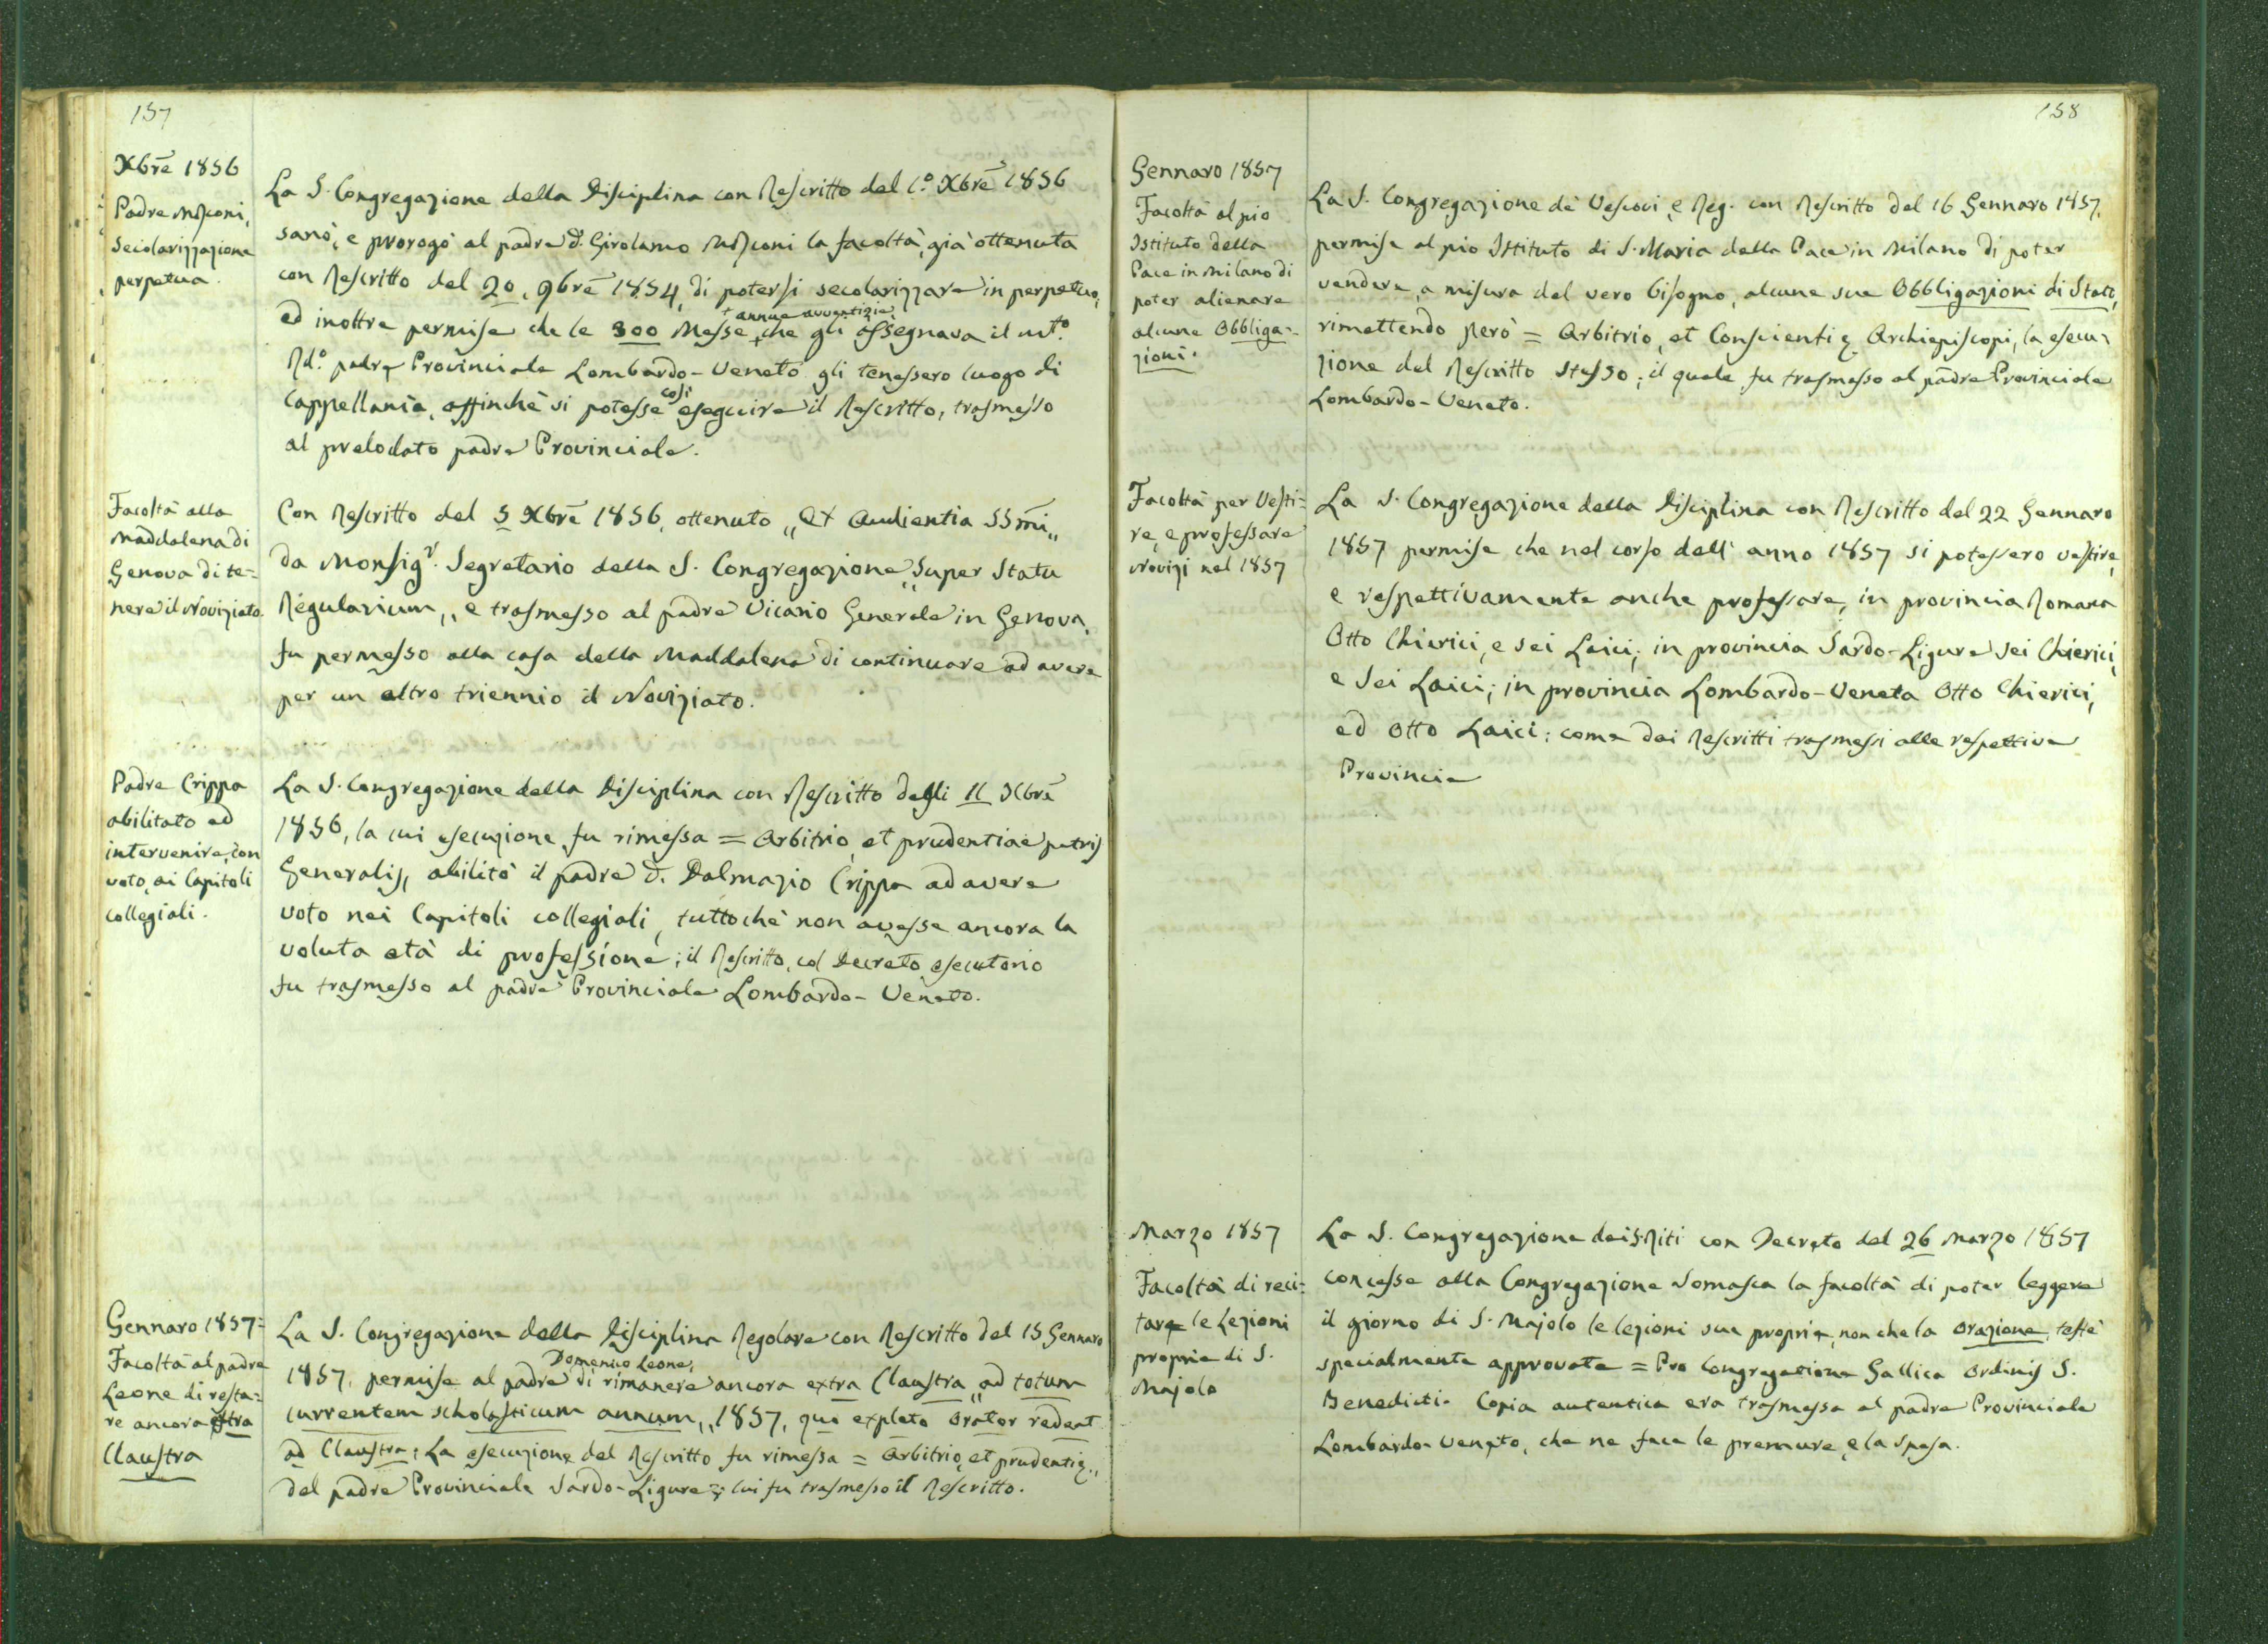 157
Xbrē 1856
Padre Mizconi,
secolarizzazione
perpetua.
La S. Congregazione della Disciplina con Rescritto del 1.º Xbrē 1856
sanò, e prorogò al padre D. Girolamo Mizconi la facoltà, già ottenuta
con Rescritto del 20, 9brē 1854, di potersi secolarizzare in perpetuo,
ed inoltre permise che le 300 Messe + annue avventizie, che gli assegnava il mtº.
Rdº. padre Provinciale Lombardo-Veneto gli tenessero luogo di
Cappellania, affinchè si potesse così eseguire il Rescritto, trasmesso
al prelodato padre Provinciale.
Facoltà alla
Maddalena di
Genova di te=
nere il Noviziato.
Con Rescritto del 5 Xbrē 1856, ottenuto „Ex Audientia SSm̄i„
da Monsigr. Segretario della S. Congregazione „Super Statu
Regularium„ e trasmesso al padre Vicario Generale in Genova,
fu permesso alla casa della Maddalena di continuare ad avere
per un altro triennio il Noviziato.
Padre Crippa
abilitato ad
intervenire, con
voto, ai Capitoli
collegiali.
La S. Congregazione della Disciplina con Rescritto degli 11 Xbrē
1856, la cui esecuzione fu rimessa = Arbitrio, et prudentiae patris
Generalis, abilitò il padre D. Dalmazio Crippa ad avere
voto nei Capitoli collegiali, tuttochè non avesse ancora la
voluta età di professione; il Rescritto, col Decreto esecutorio
fu trasmesso al padre Provinciale Lombardo-Veneto.
Gennaro 1857=
Facoltà al padre
Leone di resta=
re ancora extra
Claustra
La S. Congregazione della Disciplina Regolare con Rescritto del 15 Gennaro
1857, permise al padre Domenico Leone, di rimanere ancora extra Claustra „ad totum
currentem scholasticum annum„ 1857, quo expleto Orator redeat
ad Claustra; La esecuzione del Rescritto fu rimessa = Arbitrio, et prudentię„
del padre Provinciale Sardo-Ligure =; lui fu trasmesso il Rescritto.
158
Gennaro 1857
Facoltà al pio
Istituto della
Pace in Milano di
poter alienare
alcune Obbliga=
zioni.
La S. Congregazione de' Vescovi, e Reg. con Rescritto del 16 Gennaro 1857,
permise al pio Istituto di S. Maria della Pace in Milano di poter
vendere, a misura del vero bisogno, alcune sue Obbligazioni di Stato,
rimettendo però = Arbitrio, et Conscientię Archiepiscopi, la esecu=
zione del Rescritto stesso; il quale fu trasmesso al padre Provinciale
Lombardo-Veneto.
Facoltà per Vesti=
re, e professare
Novizi nel 1857
La S. Congregazione della Disciplina con Rescritto del 22 Gennaro
1857 permise che nel corso dell' anno 1857 si potessero vestire,
e respettivamente anche professare, in provincia Romana
Otto Chierici, e sei Laici; in provincia Sardo-Ligure sei Chierici,
e sei Laici; in provincia Lombardo-Veneta Otto Chierici,
ed Otto Laici; come dai Rescritti trasmessi alle respettive
Provincie
Marzo 1857
Facoltà di reci=
tare le Lezioni
proprie di S.
Majolo
La S. Congregazione dei S. Riti con Decreto del 26 Marzo 1857
concesse alla Congregazione Somasca la facoltà di poter leggere
il giorno di S. Majolo le lezioni sue proprie, non che la Orazione, testè
specialmente approvate = Pro Congregatione Gallica Ordinis S.
Benedicti. Copia autentica era trasmessa al padre Provinciale
Lombardo-Veneto, che ne fece le premure, e la spesa.